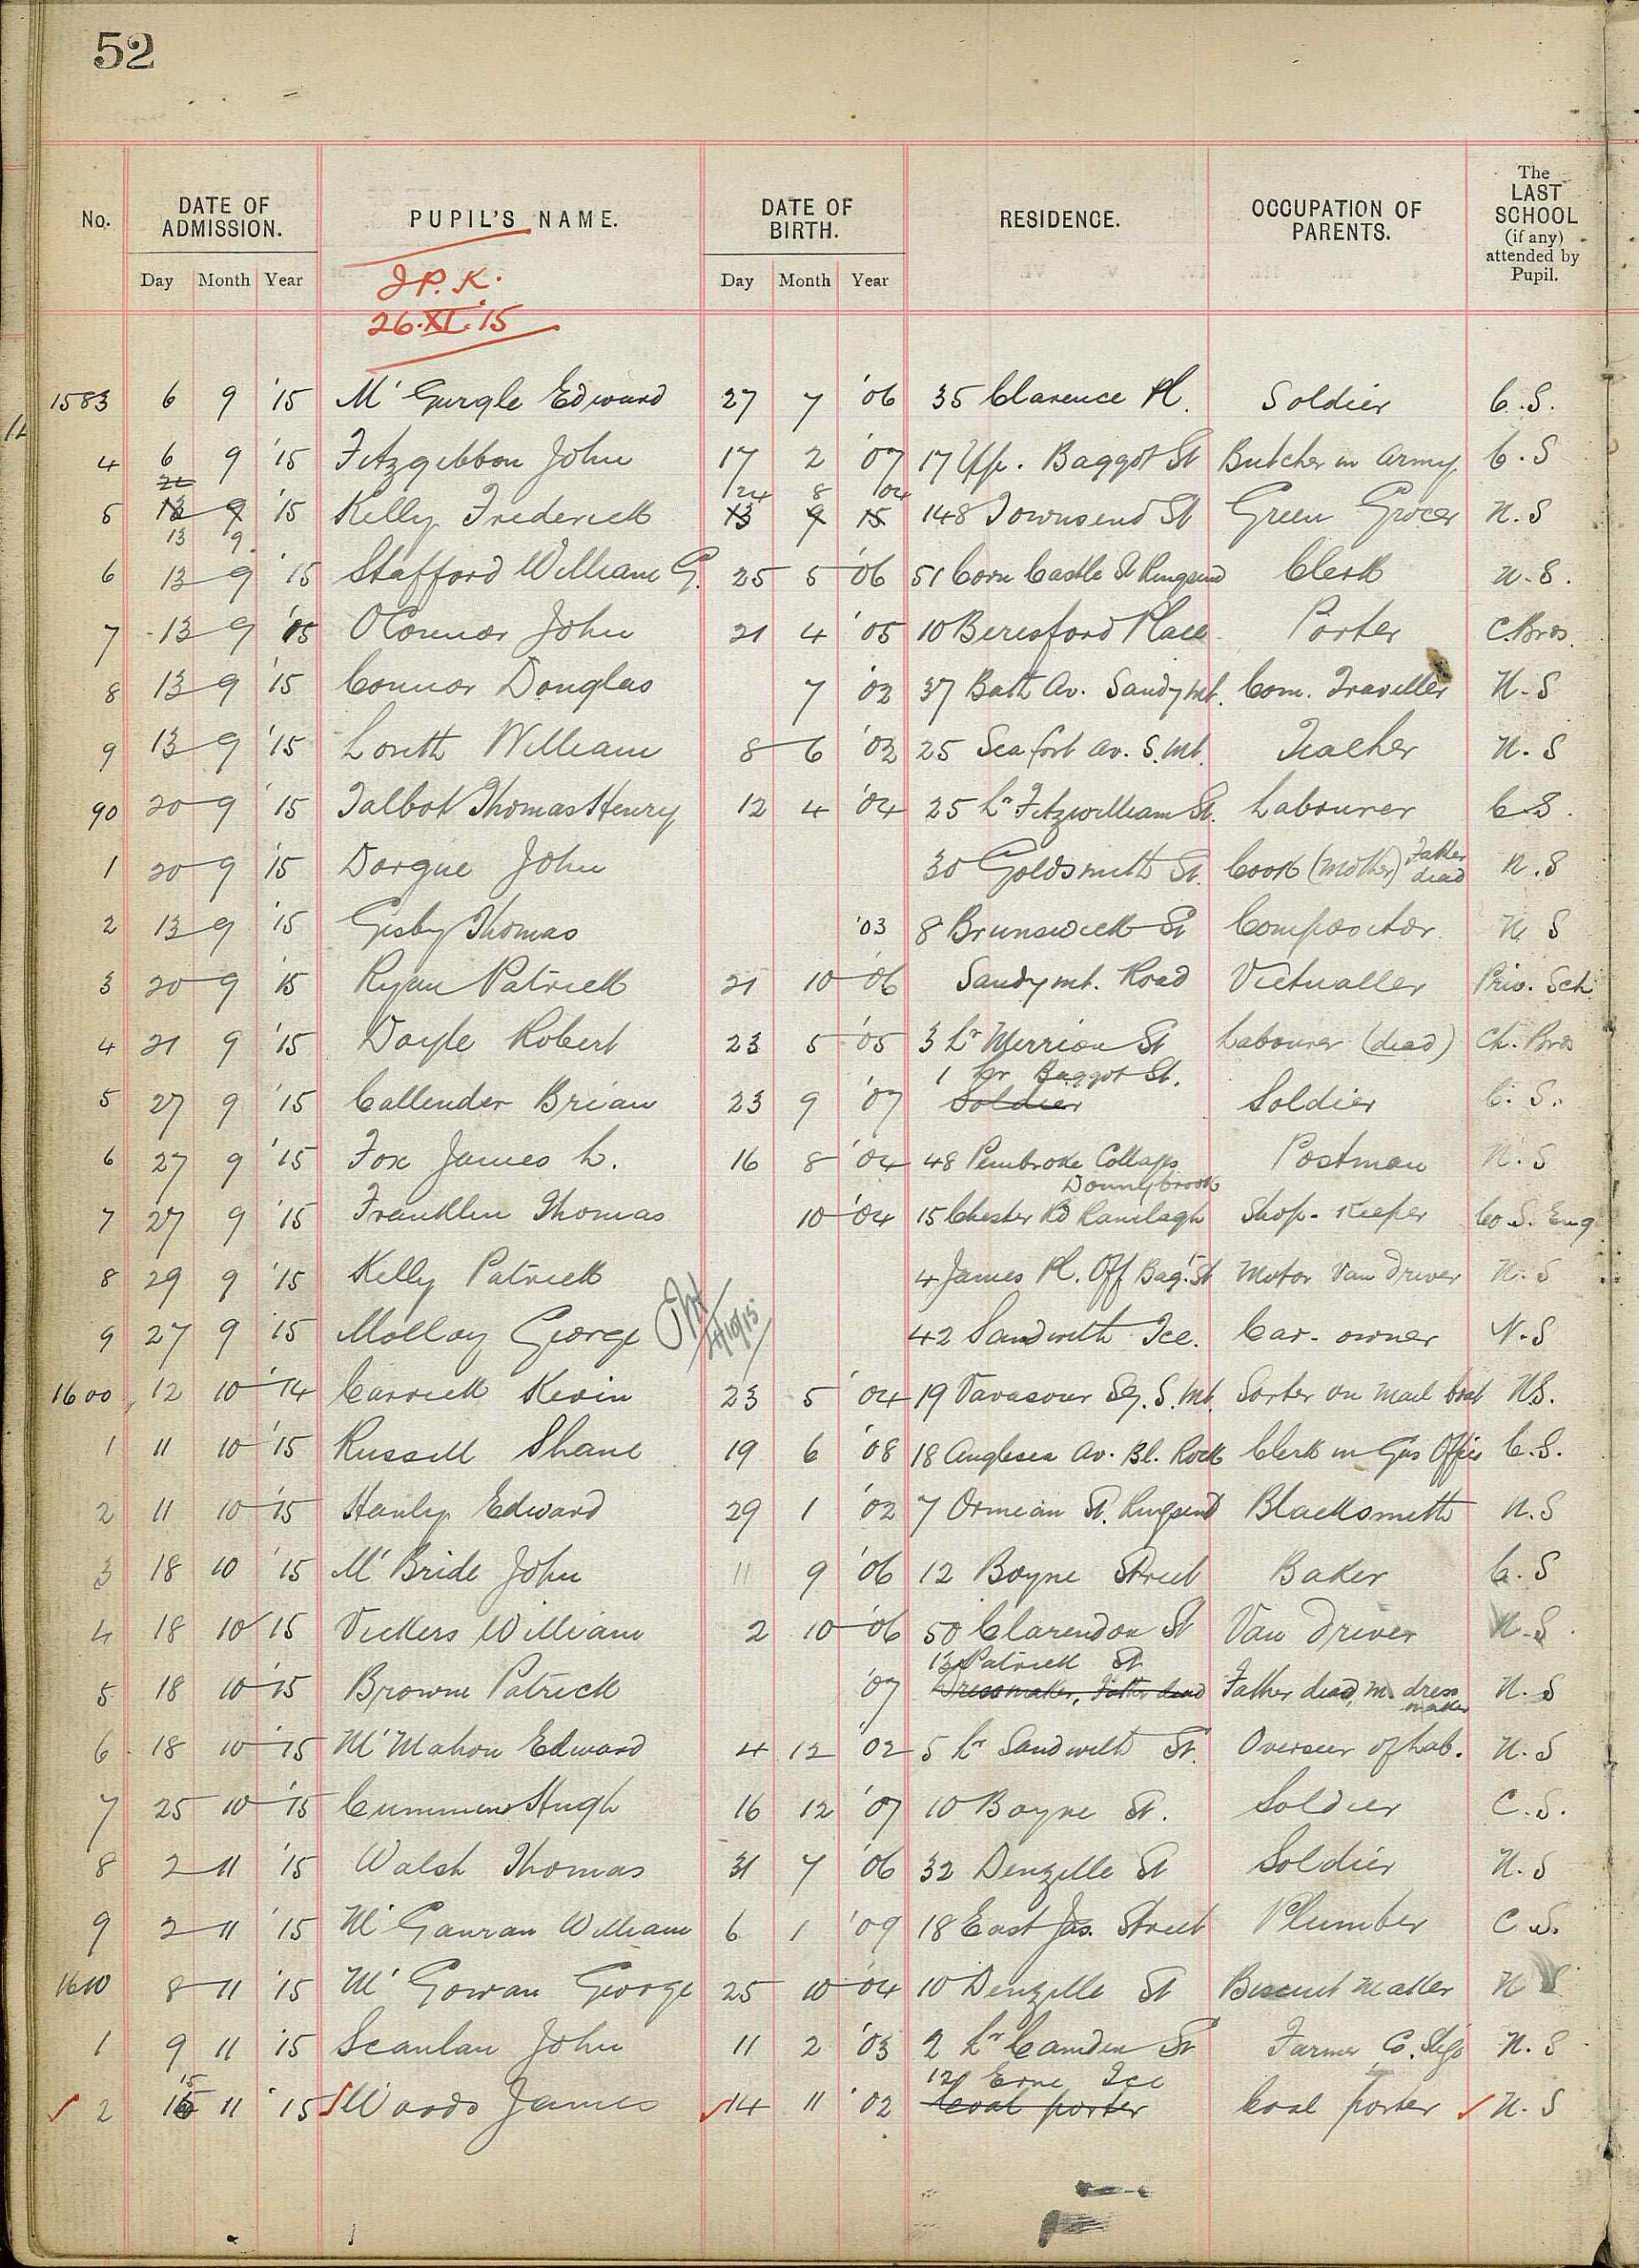 52
No. DATE OF ADMISSION. PUPIL'S NAME. DATE OF BIRTH. RESIDENCE. OCCUPATION OF PARENTS. The LAST SCHOOL (if any) attended by Pupil.
Day Month Year Day Month Year
J.P.K.
26.XI.15
1583 6 9 '15 Mc Gurgle Edward 27 7 '06 35 Clarence Pl. Soldier C.S.
4 6 9 '15 Fitzgibbon John 17 2 '07 17 Upp. Baggot St Butcher in Army C.S
24 8 '04
5 13 9 '15 Kelly Frederick 13 9 15 148 Townsend St Green Grocer N.S
13 9
6 13 9 '15 Stafford William G. 25 5 '06 51 Corn Castle St Ringsend Clerk N.S.
7 13 9 '15 O'Connor John 21 4 '05 10 Beresford Place Porter C.Bros.
8 13 9 '15 Connor Douglas 7 '03 37 Bath Av. Sandymt. Com. Traveller N.S
9 13 9 '15 Louth William 8 6 '03 25 Seafort Av. S.Mt. Teacher N.S
90 20 9 '15 Talbot Thomas Henry 12 4 '04 25 Lr Fitzwilliam St. Labourer C.S.
1 20 9 '15 Dorgue John 30 Goldsmith St. Cook (Mother) Father dead N.S
2 13 9 '15 Gisby Thomas '03 8 Brunswick St Compositor N S
3 20 9 '15 Ryan Patrick 21 10 '06 Sandymt. Road Victualler Priv. Sch
4 21 9 '15 Doyle Robert 23 5 '05 3 Lr Merrion St Labourer (dead) Ch. Bros
1 Lr Baggot St.
5 27 9 '15 Callender Brian 23 9 '07 Soldier Soldier C.S.
6 27 9 '15 Fox James L. 16 8 '04 48 Pembroke Cottages Postman N.S
Donnybrook
7 27 9 '15 Franklin Thomas 10 '04 15 Chester Rd Ranelagh Shop-Keeper Co.S. Eng
8 29 9 '15 Kelly Patrick 4 James Pl. Off Bag. St Motor Van Driver N.S
9 27 9 '15 Molloy George 42 Sandwith Tce. Car-owner N.S
1600 12 10 '14 Carrick Kevin 23 5 '04 19 Vavasour Sq. S.Mt. Sorter on Mail boat N.S.
1 11 10 '15 Russell Shane 19 6 '08 18 Anglesea Av. Bl. Rock Clerk in Gas Office C.S.
2 11 10 '15 Hanly Edward 29 1 '02 7 Ormean St. Ringsend Blacksmith N.S
3 18 10 '15 Mc Bride John 11 9 '06 12 Boyne Street Baker C.S
4 18 10 '15 Vickers William 2 10 '06 50 Clarendon St Van Driver N.S.
13 Patrick St
5 18 10 '15 Browne Patrick '07 Dressmaker, Father dead Father dead, M. dress maker N.S
6 18 10 '15 Mc Mahon Edward 4 12 '02 5 Lr Sandwith St. Overseer of Lab. N.S
7 25 10 '15 Cummins Hugh 16 12 '07 10 Boyne St. Soldier C.S.
8 2 11 '15 Walsh Thomas 31 7 '06 32 Denzille St Soldier N.S
9 2 11 '15 Mc Gauran William 6 1 '09 18 East Jas. Street Plumber C.S.
1610 8 11 '15 Mc Gowan George 25 10 '04 10 Denzille St Biscuit Maker N S
1 9 11 '15 Scanlan John 11 2 '03 2 Lr Camden St Farmer Co. Sligo N.S
15 12 Erne Tce
2 16 11 '15 Woods James 14 11 '02 Coal porter Coal porter N.S